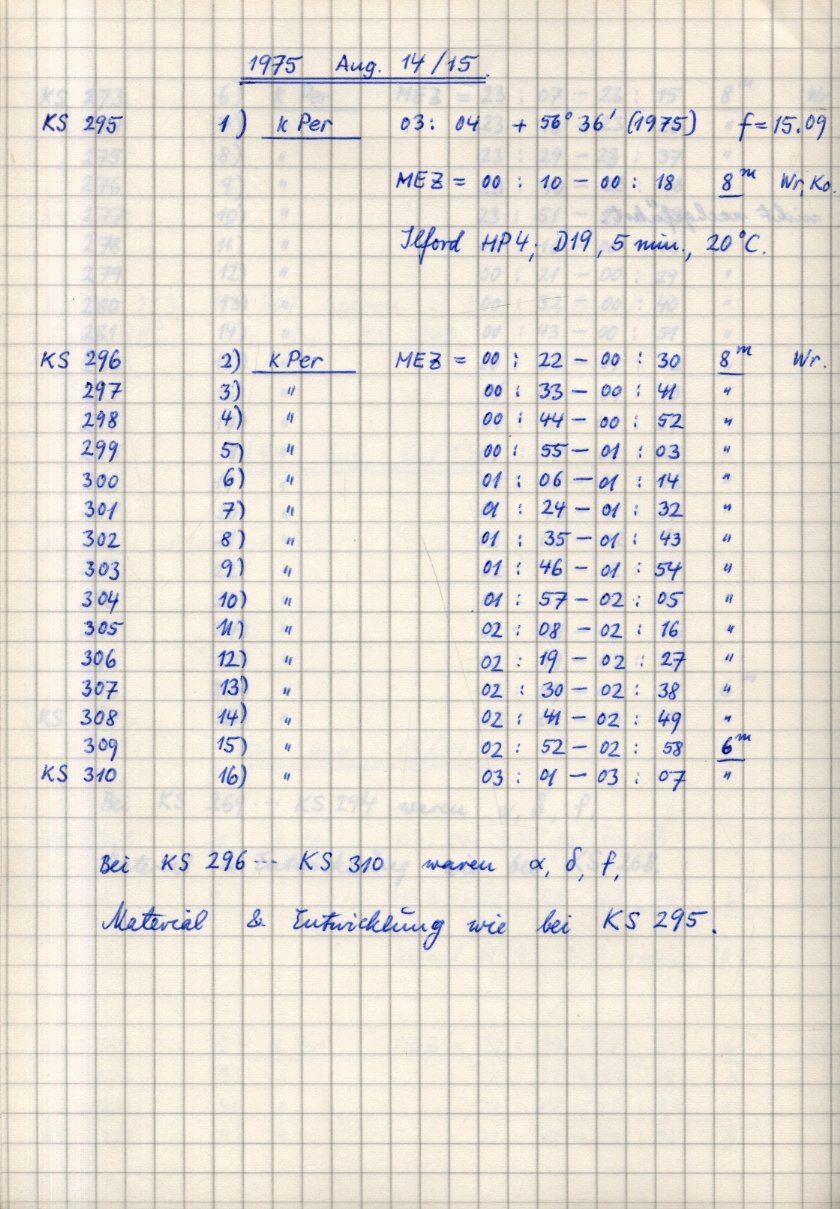 1975 Aug. 14/15
KS 295 1) k Per 03: 04 + 56° 36' (1975) f = 15.09
MEZ = 00 : 10 – 00 : 18 8m Wr, Ko.
Ilford HP4; D19, 5 min., 20°C.
KS 296 2) k Per MEZ = 00 : 22 – 00 : 30 8m Wr.
297 3) " 00 : 33 – 00 : 41 "
298 4) " 00 : 44 – 00 : 52 "
299 5) " 00 : 55 – 01 : 03 "
300 6) " 01 : 06 – 01 : 14 "
301 7) " 01 : 24 – 01 : 32 "
302 8) " 01 : 35 – 01 : 43 "
303 9) " 01 : 46 – 01 : 54 "
304 10) " 01 : 57 – 02 : 05 "
305 11) " 02 : 08 – 02 : 16 "
306 12) " 02 : 19 – 02 : 27 "
307 13) " 02 : 30 – 02 : 38 "
308 14) " 02 : 41 – 02 : 49 "
309 15) " 02 : 52 – 02 : 58 6m
KS 310 16) " 03 : 01 – 03 : 07 "
Bei KS 296 --- KS 310 waren α, δ, f,
Material & Entwicklung wie bei KS 295.